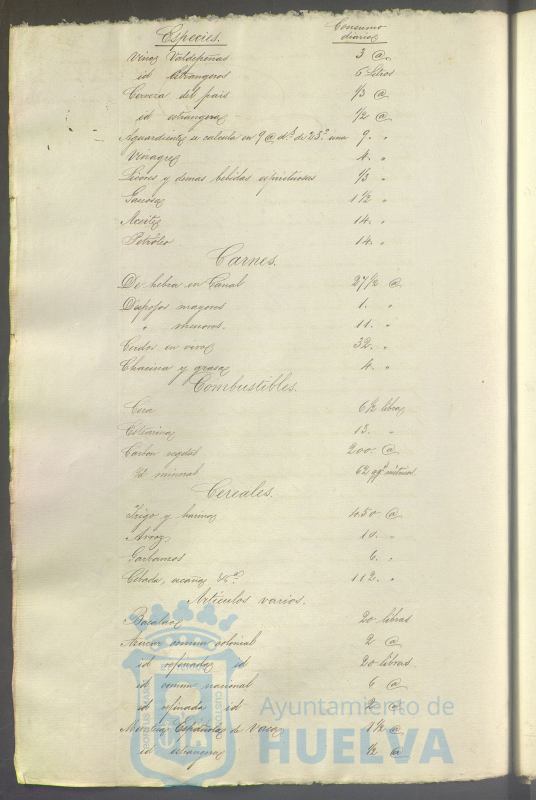 Especies. Consumo diario
Vinos Valdepeñas 3 @
id estrangeros 6 Litros
Cerveza del pais 1/3 @
id estrangera 1/2 @
Aguardientes se calcula en 9 @ d.s de 25.º una 9. "
Vinagres 4. "
Licores y demas bebidas espirituosas 1/3 "
1 1/2 "
Aceites 14. "
Petróleo 14. "
Carnes.
De hebra en Canal 27 1/2 @
Despojos mayores 1. "
" menores. 11. "
Cerdos en vivo 32. "
Chacina y grasas 4. "
Combustibles.
Cera 6 1/2 libras
Estearina 13. "
Carbon vegetal 200. @
Id mineral 62 métricos
Cereales.
Trigo y harina 450 @
Arroz 10. "
Garbanzos 6. "
Cebada, escaña &a. 112. "
Artículos varios.
Bacalao 20 libras
Azucar comun colonial 2 @
id refinada id 20 libras
id comun nacional 6 @
id refinada id 2 @
Manteca Española de Vaca 1 1/2 @
id estrangera 1/2 @
Ayuntamiento de
HUELVA